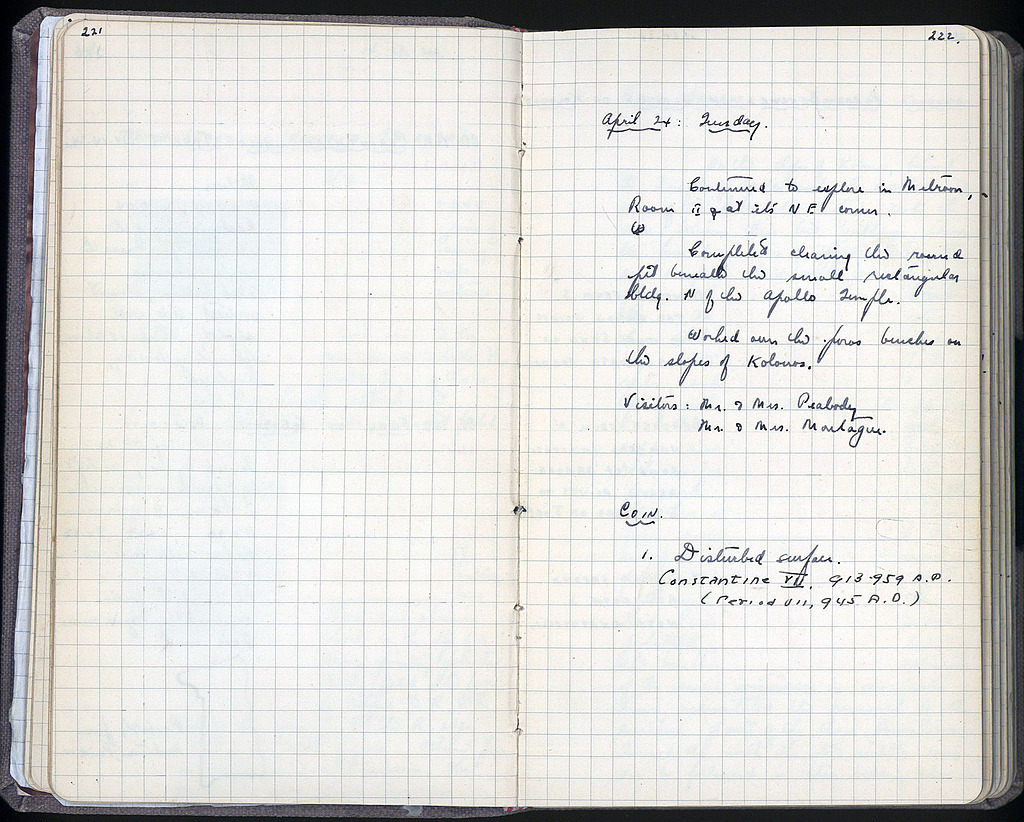 221
222.
April 24: Tuesday.
Continued to explore in Metroon,
Room II & at its NE corner.
Completed clearing the round
pit beneath the small rectangular
bldg. N of the Apollo Temple.
Worked over the poros benches on
the slopes of Kolonos.
Visitors: Mr. & Mrs. Peabody
Mr. & Mrs. Montague.
COIN.
1. Disturbed surface.
Constantine VII. 913-959 A.D.
(Period VII, 945 A.D.)